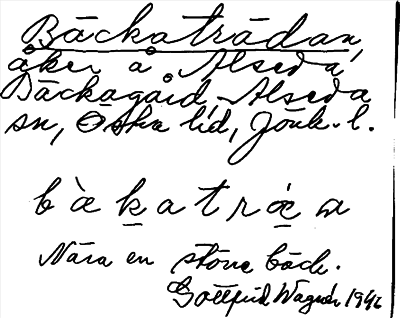 Bäckaträdan,
åker å Alseda
Bäckagård, Alseda
sn, Östra hd, Jönk. l.
bàkatráen
Nära en större bäck.
Gottfrid Wagnér 1946